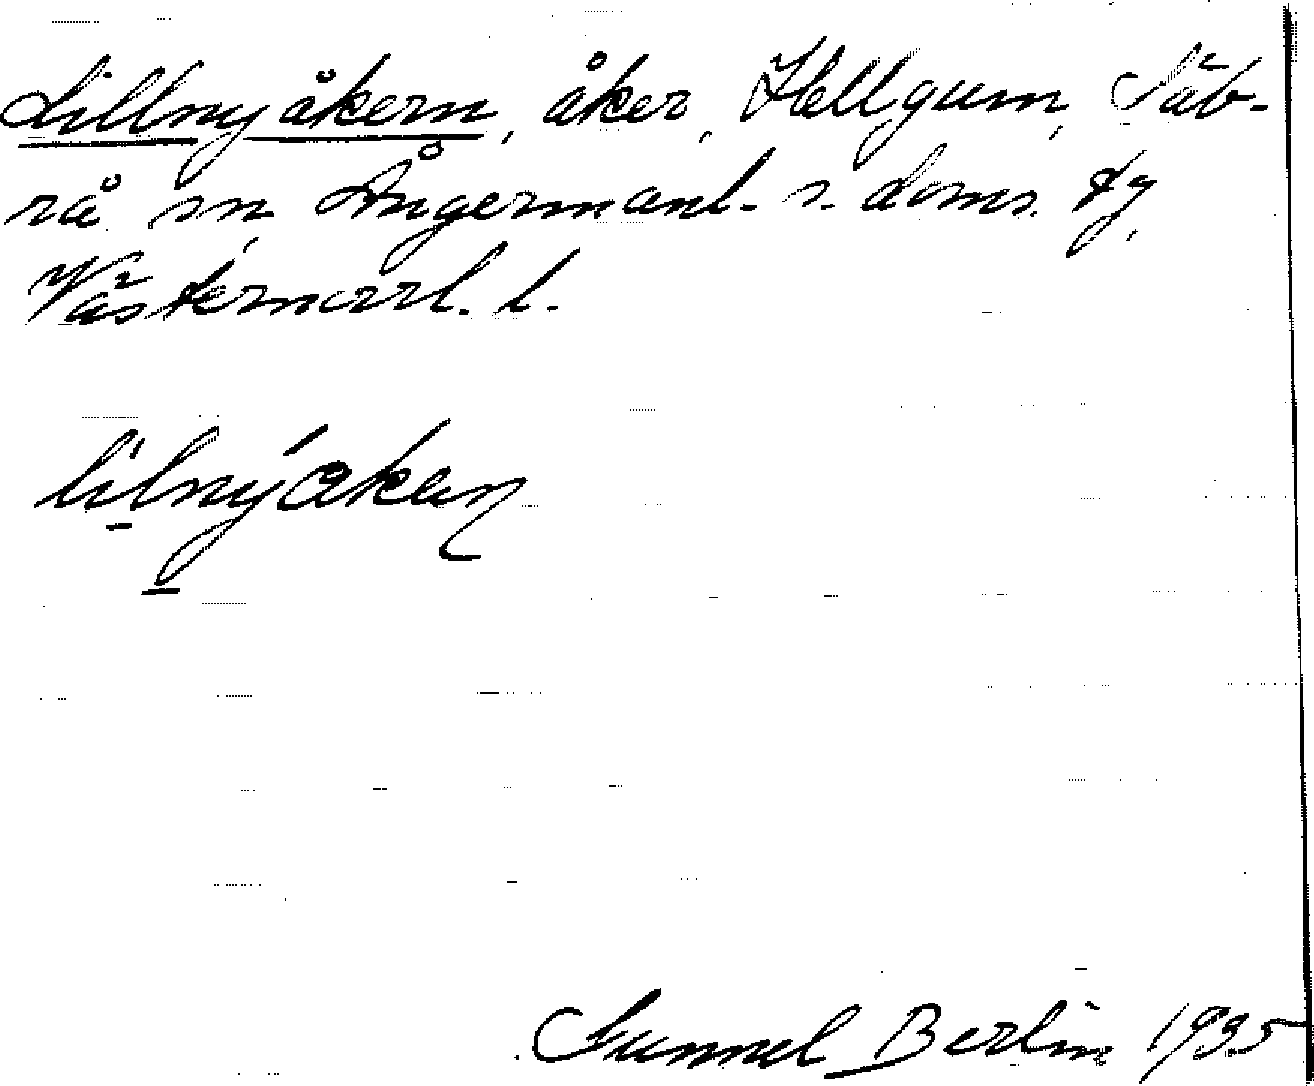 Lillnyåkern, åker, Hellgum, Säb-
rå sn, Ångermanl. s. doms. tg,
Västernorrl. l.
lilnýakan
Gunnel Berlin 1935